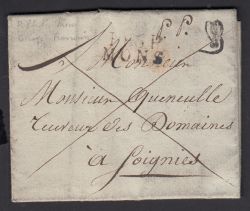 P.P.
Monsieur
MONS
Monsieur Queneulle
Receveur des Domaines
à Soignies